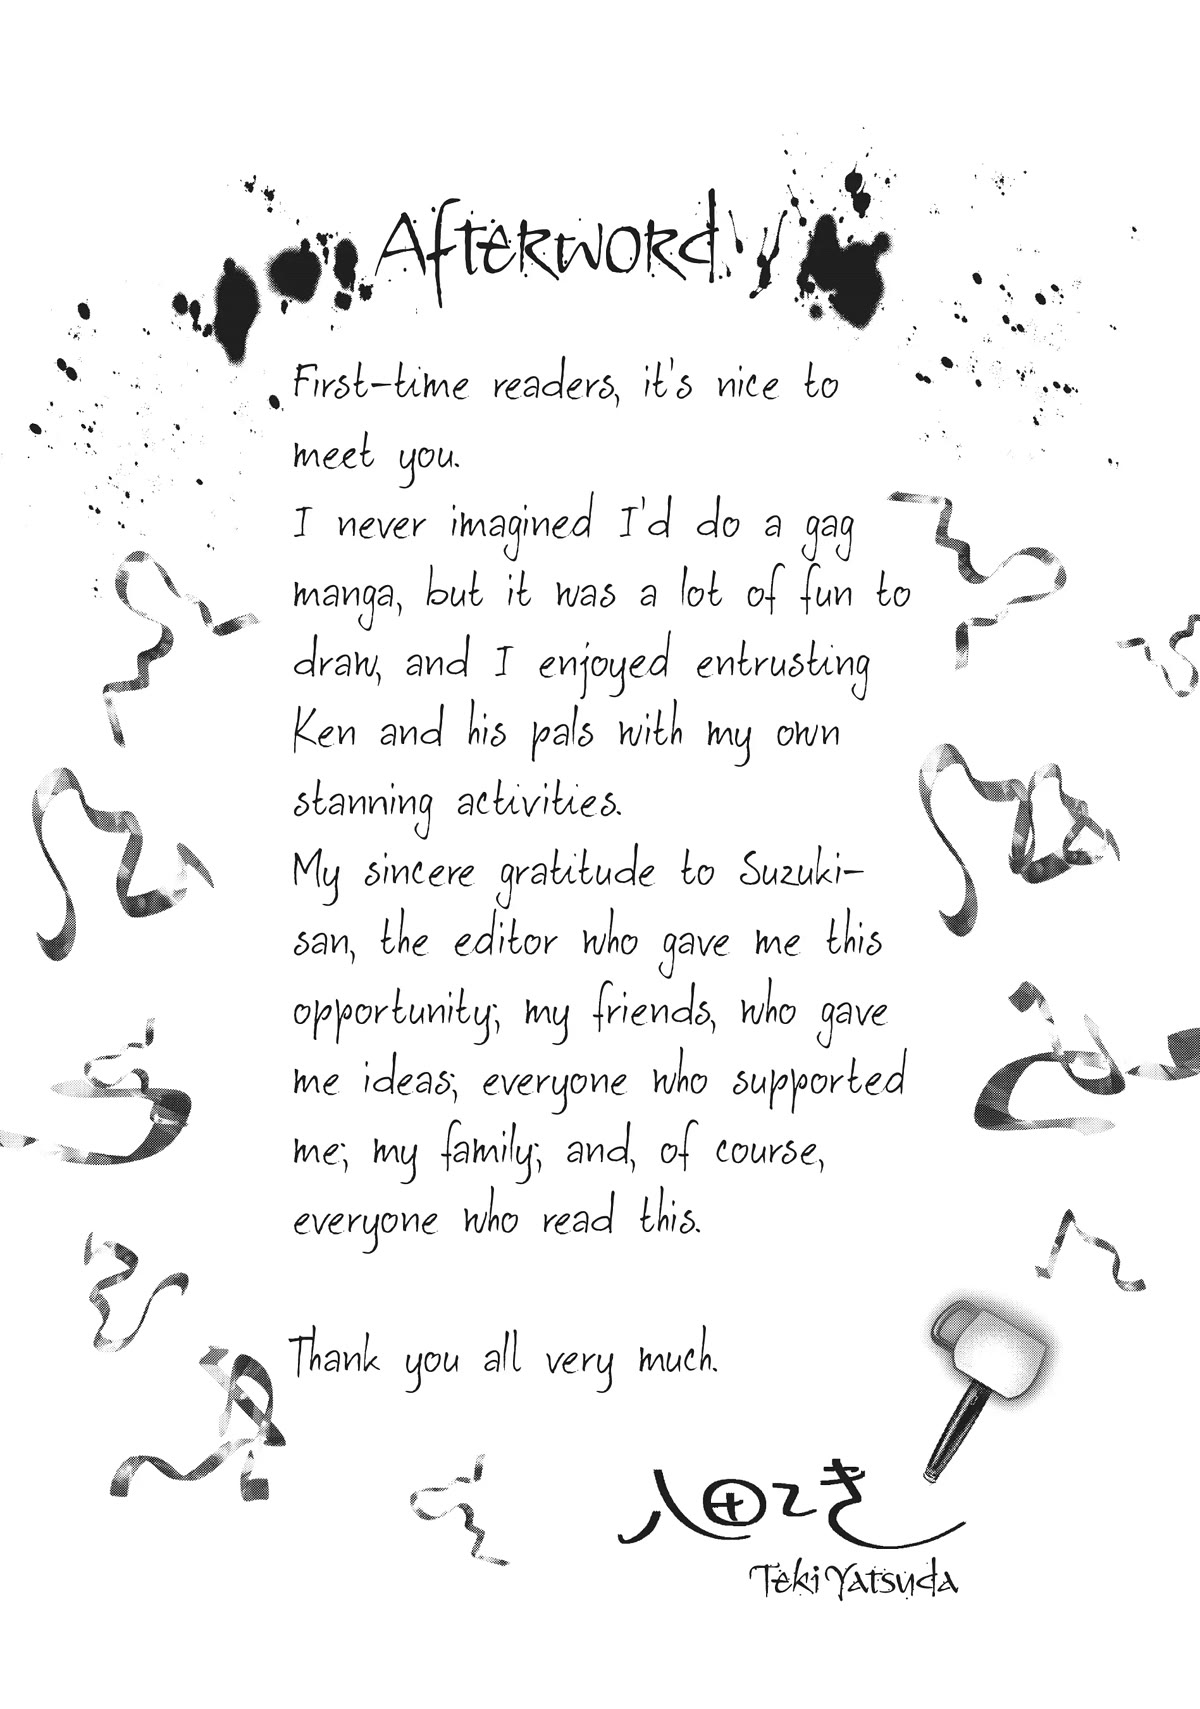 Afterword
First-time readers, it's nice to
meet you.
I never imagined I'd do a gag
manga, but it was a lot of fun to
draw, and I enjoyed entrusting
Ken and his pals with my own
stanning activities.
My sincere gratitude to Suzuki-
san, the editor who gave me this
opportunity; my friends, who gave
me ideas; everyone who supported
me; my family; and, of course,
everyone who read this.
Thank you all very much.
八田てき
Teki Yatsuda